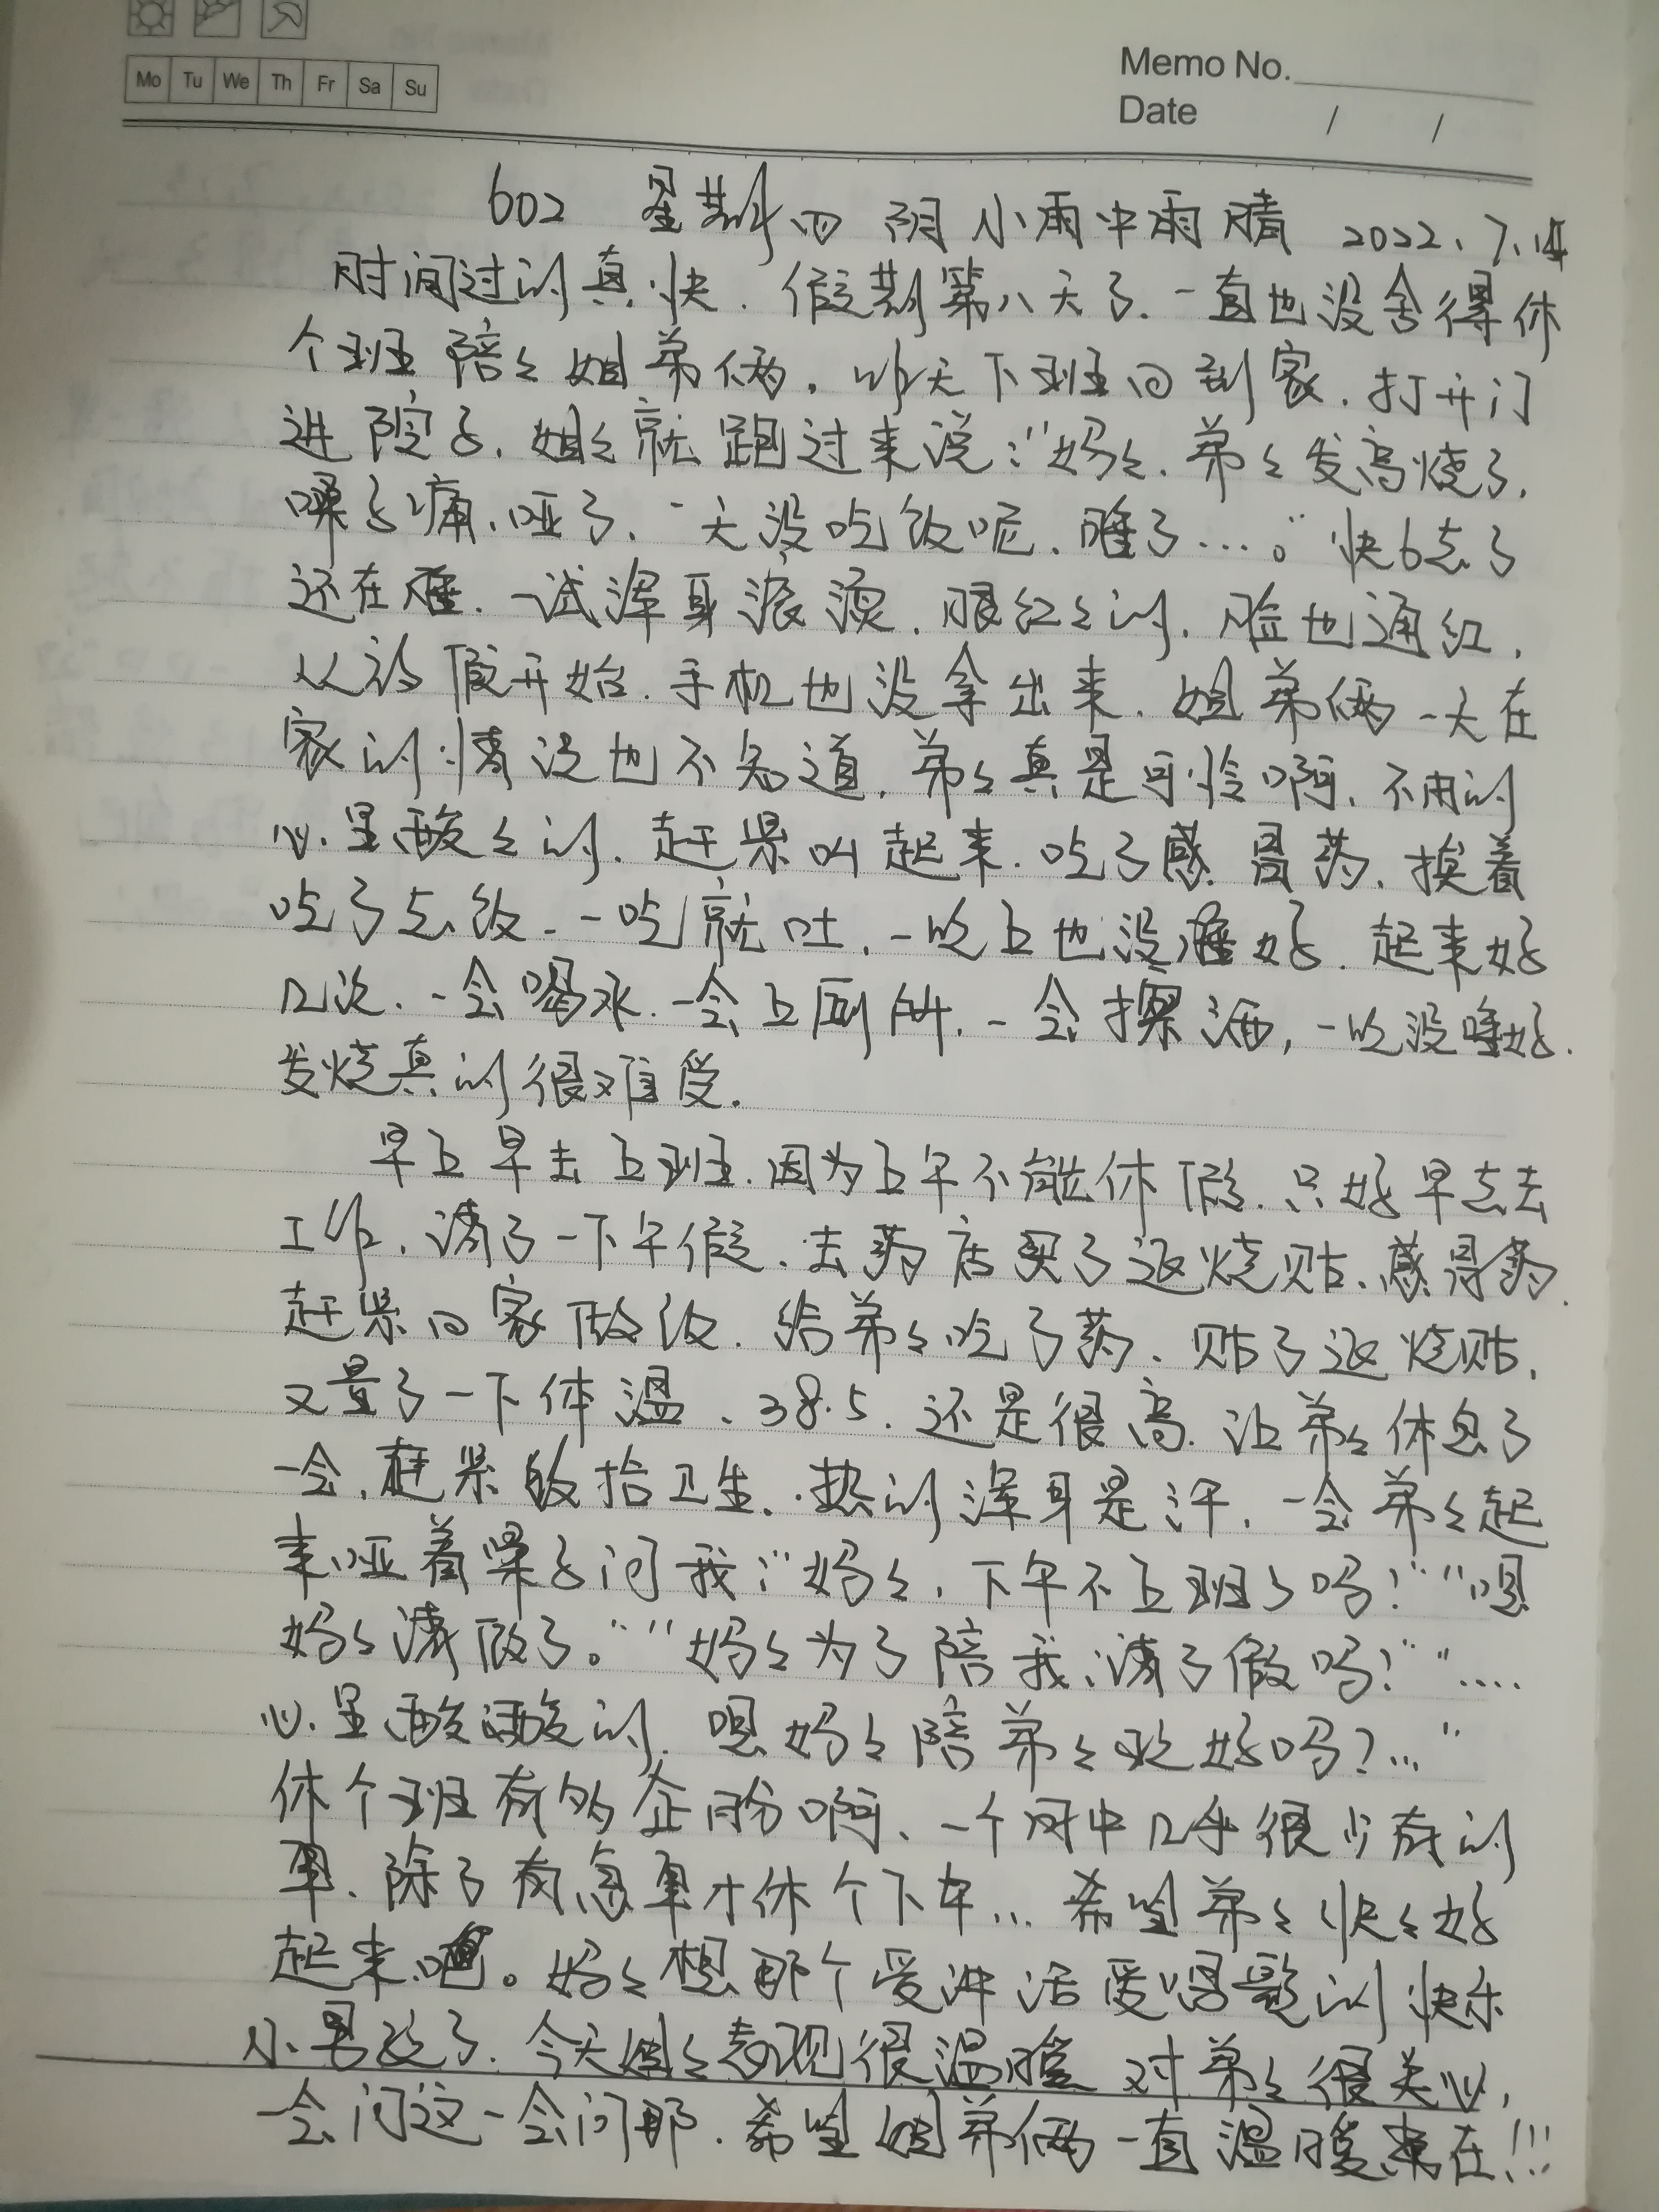 Mo Tu We Th Fr Sa Su
Memo No.
Date / /
602 星期四 阴小雨中雨晴 2022.7.14
时间过的真快.假期第八天了.一直也没舍得休
个班陪々姐弟俩.昨天下班回到家.打开门
进院子.姐々就跑过来说:"妈々.弟々发高烧了.
嗓子痛.哑了.一天没吃饭呢.睡了...。"快6点了
还在睡.一试浑身滚烫.眼红々的.脸也通红.
从放假开始.手机也没拿出来.姐弟俩一天在
家的情况也不知道.弟々真是可怜啊.不由的
心里酸々的.赶紧叫起来.吃了感冒药.挨着
吃了点饭.一吃就吐.一晚上也没睡好.起来好
几次.一会喝水.一会上厕所.一会擦洒,一晚没睡好.
发烧真的很难受.
早上早去上班.因为上午不能休假.只好早点去
工作.请了一下午假.去药店买了退烧贴.感冒药.
赶紧回家做饭.给弟々吃了药.贴了退烧贴.
又量了一下体温.38.5.还是很高.让弟々休息了
一会.赶紧收拾卫生.热的浑身是汗.一会弟々起
来哑着嗓子问我:"妈々.下午不上班了吗?""嗯
妈々请假了。""妈々为了陪我请了假吗?""....
心里酸酸的.嗯妈々陪弟々玩好吗?..."
休个班有多企盼啊.一个月中几乎很少有的
事.除了有急事才休个下午...希望弟々快々好
起来吧。妈々想那个爱讲话爱唱歌的快乐
小男孩了.今天姐々表现很温暖 对弟々很关心,
一会问这一会问那.希望姐弟俩一直温暖在!!!